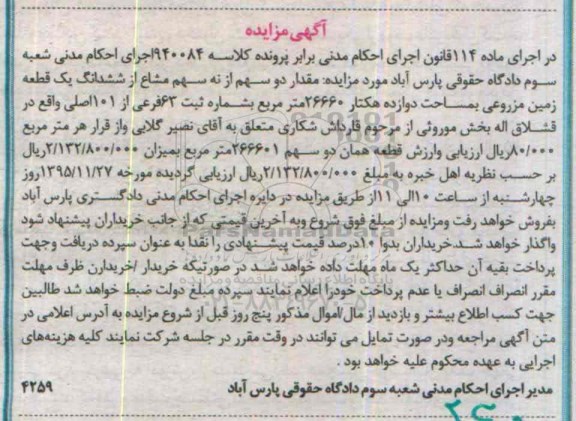 آگهی مزایده
در اجرای ماده ۱۱۴قانون اجرای احکام مدنی برابر پرونده کلاسه ۹۴۰۰۸۴اجرای احکام مدنی شعبه
سوم دادگاه حقوقی پارس آباد مورد مزایده: مقدار دو سهم از نه سهم مشاع از ششدانگ یک قطعه
زمین مزروعی بمساحت دوازده هکتار ۲۶۶۶۰متر مربع بشماره ثبت ۶۳فرعی از ۱۰۱اصلی واقع در
قشلاق اله بخش موروثی از مرحوم قارداش شکاری متعلق به آقای نصیر گلابی واز قرار هر متر مربع
۸۰/۰۰۰ریال ارزیابی وارزش قطعه همان دو سهم ۲۶۶۶۰۱متر مربع بمیزان ۲/۱۳۲/۸۰۰/۰۰۰ریال
بر حسب نظریه اهل خبره به مبلغ ۲/۱۳۲/۸۰۰/۰۰۰ریال ارزیابی گردیده مورخه ۱۳۹۵/۱۱/۲۷روز
چهارشنبه از ساعت ۱۰الی ۱۱از طریق مزایده در دایره اجرای احکام مدنی دادگستری پارس آباد
بفروش خواهد رفت ومزایده از مبلغ فوق شروع وبه آخرین قیمتی که از جانب خریداران پیشنهاد شود
واگذار خواهد شد.خریداران بدوا ۱۰درصد قیمت پیشنهادی را نقدا به عنوان سپرده دریافت وجهت
پرداخت بقیه آن حداکثر یک ماه مهلت داده خواهد شد در صورتیکه خریدار /خریدارن ظرف مهلت
مقرر انصراف انصراف یا عدم پرداخت خودرا اعلام نمایند سپرده مبلغ دولت ضبط خواهد شد طالبین
جهت کسب اطلاع بیشتر و بازدید از مال/اموال مذکور پنج روز قبل از شروع مزایده به آدرس اعلامی در
متن آگهی مراجعه ودر صورت تمایل می توانند در وقت مقرر در جلسه شرکت نمایند کلیه هزینه‌های
اجرایی به عهده محکوم علیه خواهد بود .
مدیر اجرای احکام مدنی شعبه سوم دادگاه حقوقی پارس آباد
۴۲۵۹